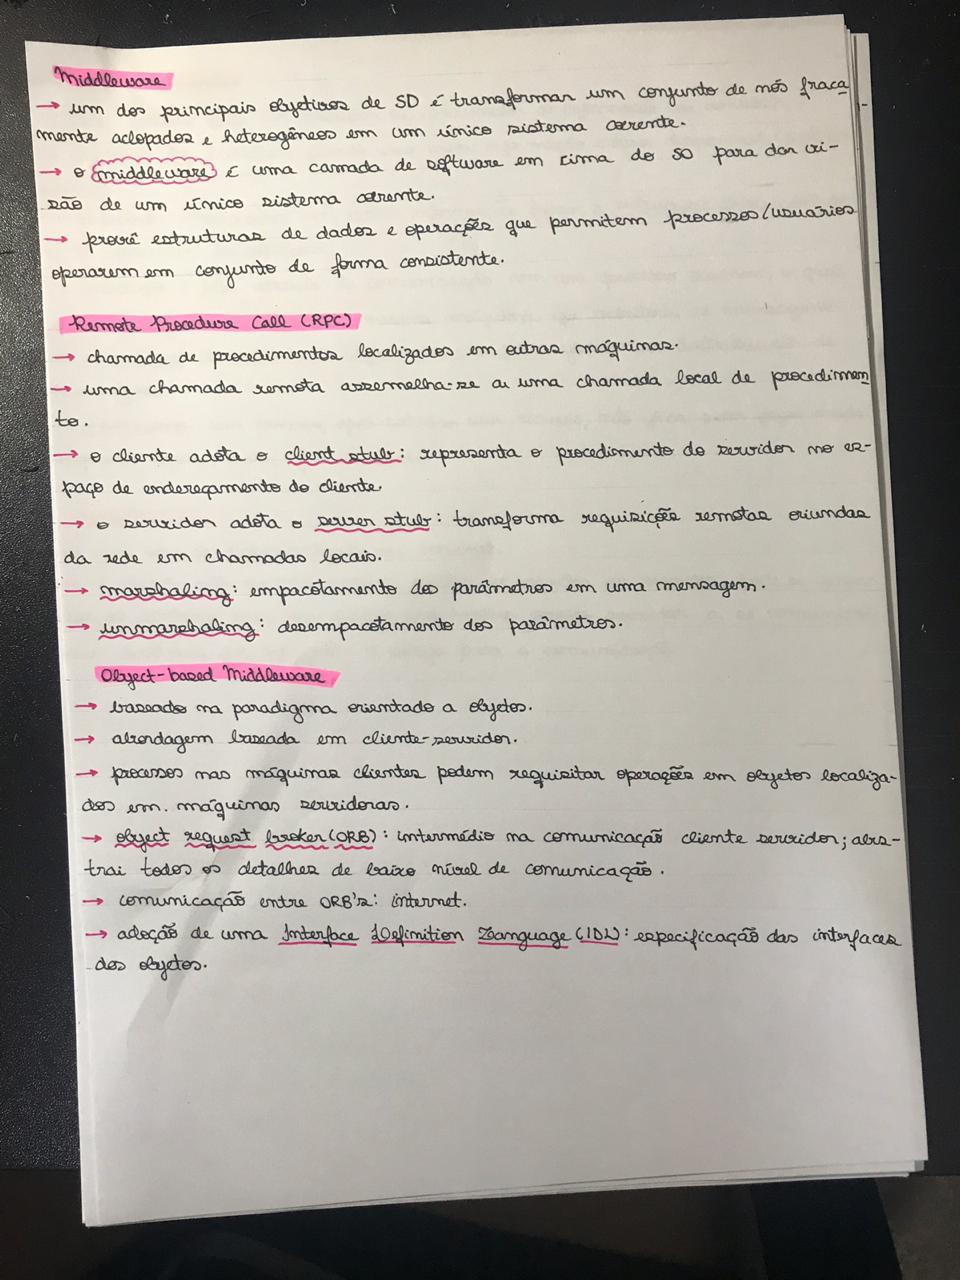 Middleware
→ um dos principais objetivos de SD é transformar um conjunto de nós fraca
mente aclopados e heterogêneos em um único sistema coerente.
→ o middleware é uma camada de software em cima do SO para dar vi-
são de um único sistema coerente.
→ provê estruturas de dados e operações que permitem processos/usuários
operarem em conjunto de forma consistente.
Remote Procedure Call (RPC)
→ chamada de procedimentos localizados em outras máquinas.
→ uma chamada remota assemelha-se a uma chamada local de procedimen
to.
→ o cliente adota o client stub: representa o procedimento do servidor no es-
paço de endereçamento do cliente.
→ o servidor adota o server stub: transforma requisições remotas oriundas
da rede em chamadas locais.
→ marshaling: empacotamento dos parâmetros em uma mensagem.
→ unmarshaling: desempacotamento dos parâmetros.
Object-based Middleware
→ baseado no paradigma orientado a objetos.
→ abordagem baseada em cliente-servidor.
→ processos nas máquinas clientes podem requisitar operações em objetos localiza-
dos em. máquinas servidoras.
→ object request broker (ORB): intermédio na comunicação cliente servidor; abs-
trai todos os detalhes de baixo nível de comunicação.
→ comunicação entre ORB's: internet.
→ adoção de uma Interface Definition Language (IDL): especificação das interfaces
dos objetos.